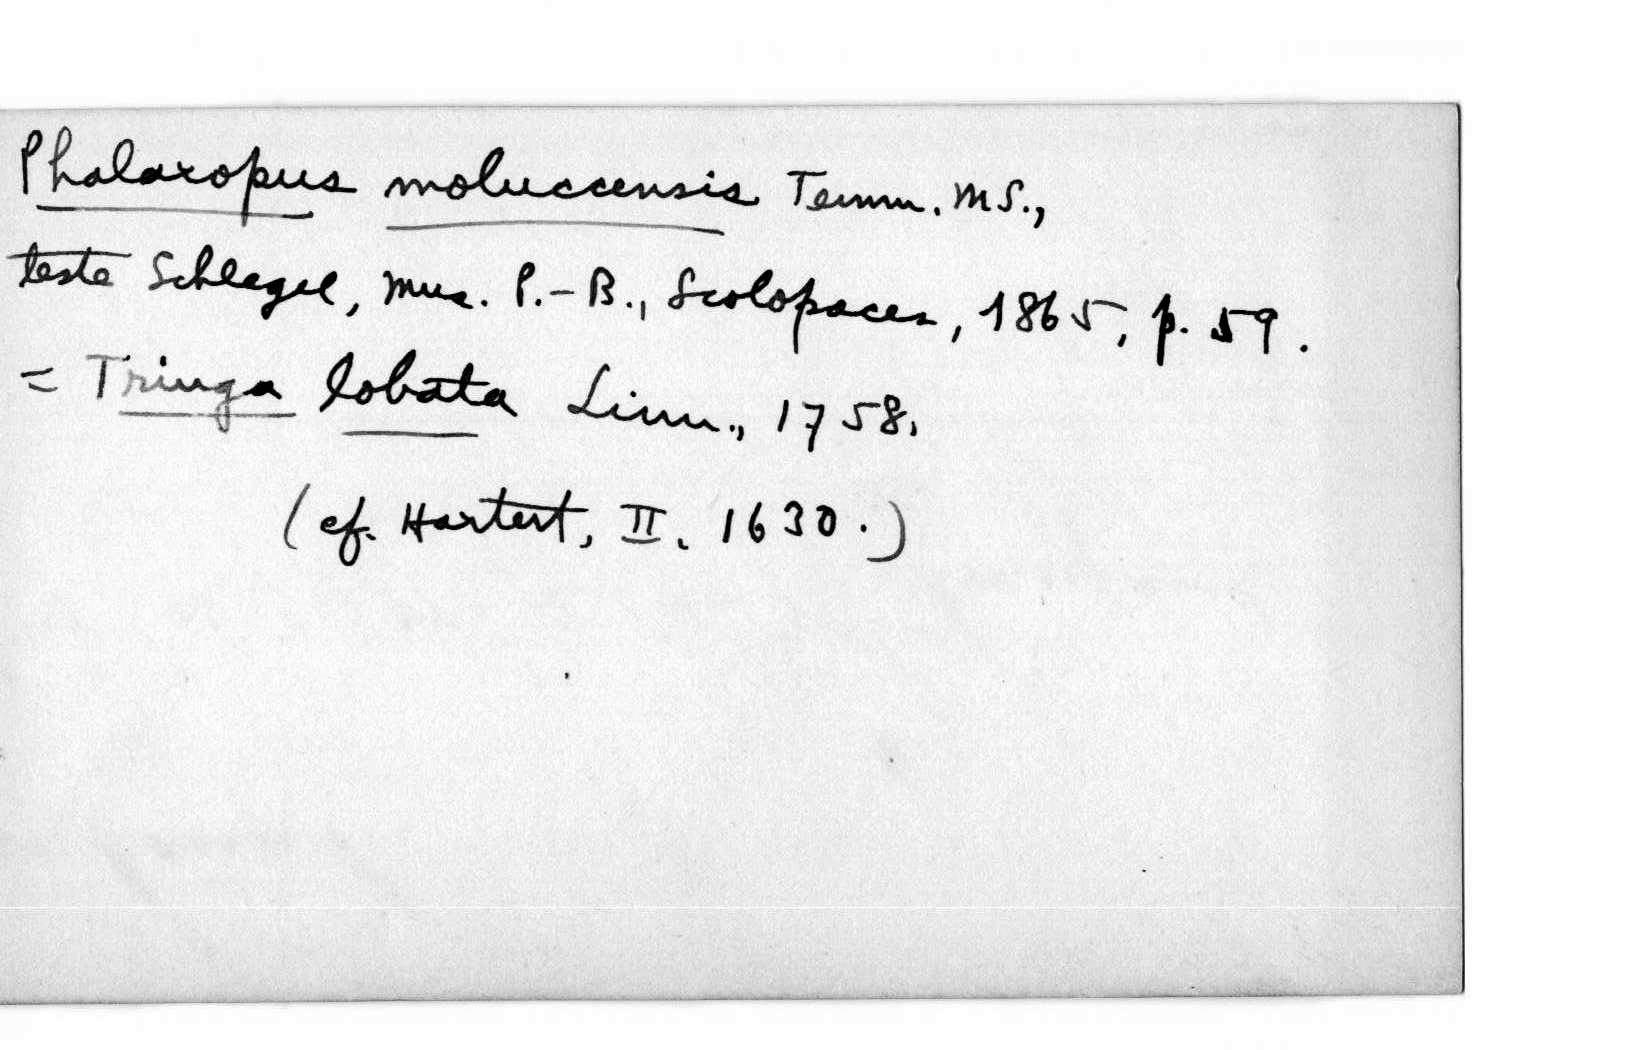 Phalaropus moluccensis Temm. MS.,
teste Schlegel, Mus. P.-B., Scolopaces, 1865, p. 59.
= Tringa lobata Linn., 1758.
(cf. Hartert, II. 1630.)